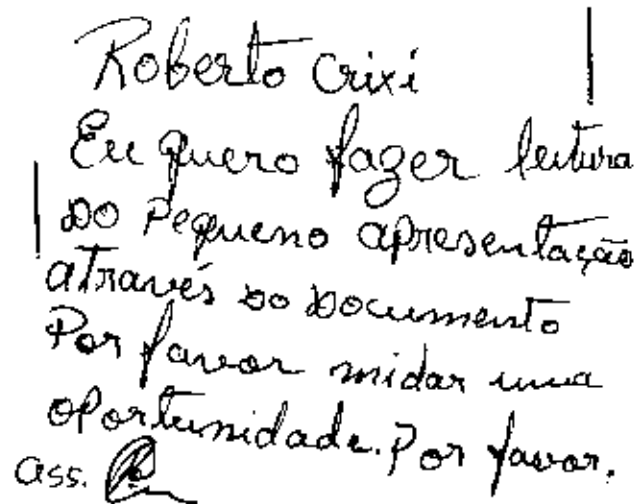 Roberto Crixi
Eu quero fazer leitura
Do Pequeno apresentação
através do Documento
Por favor midar uma
oportunidade. Por favor.
ass.